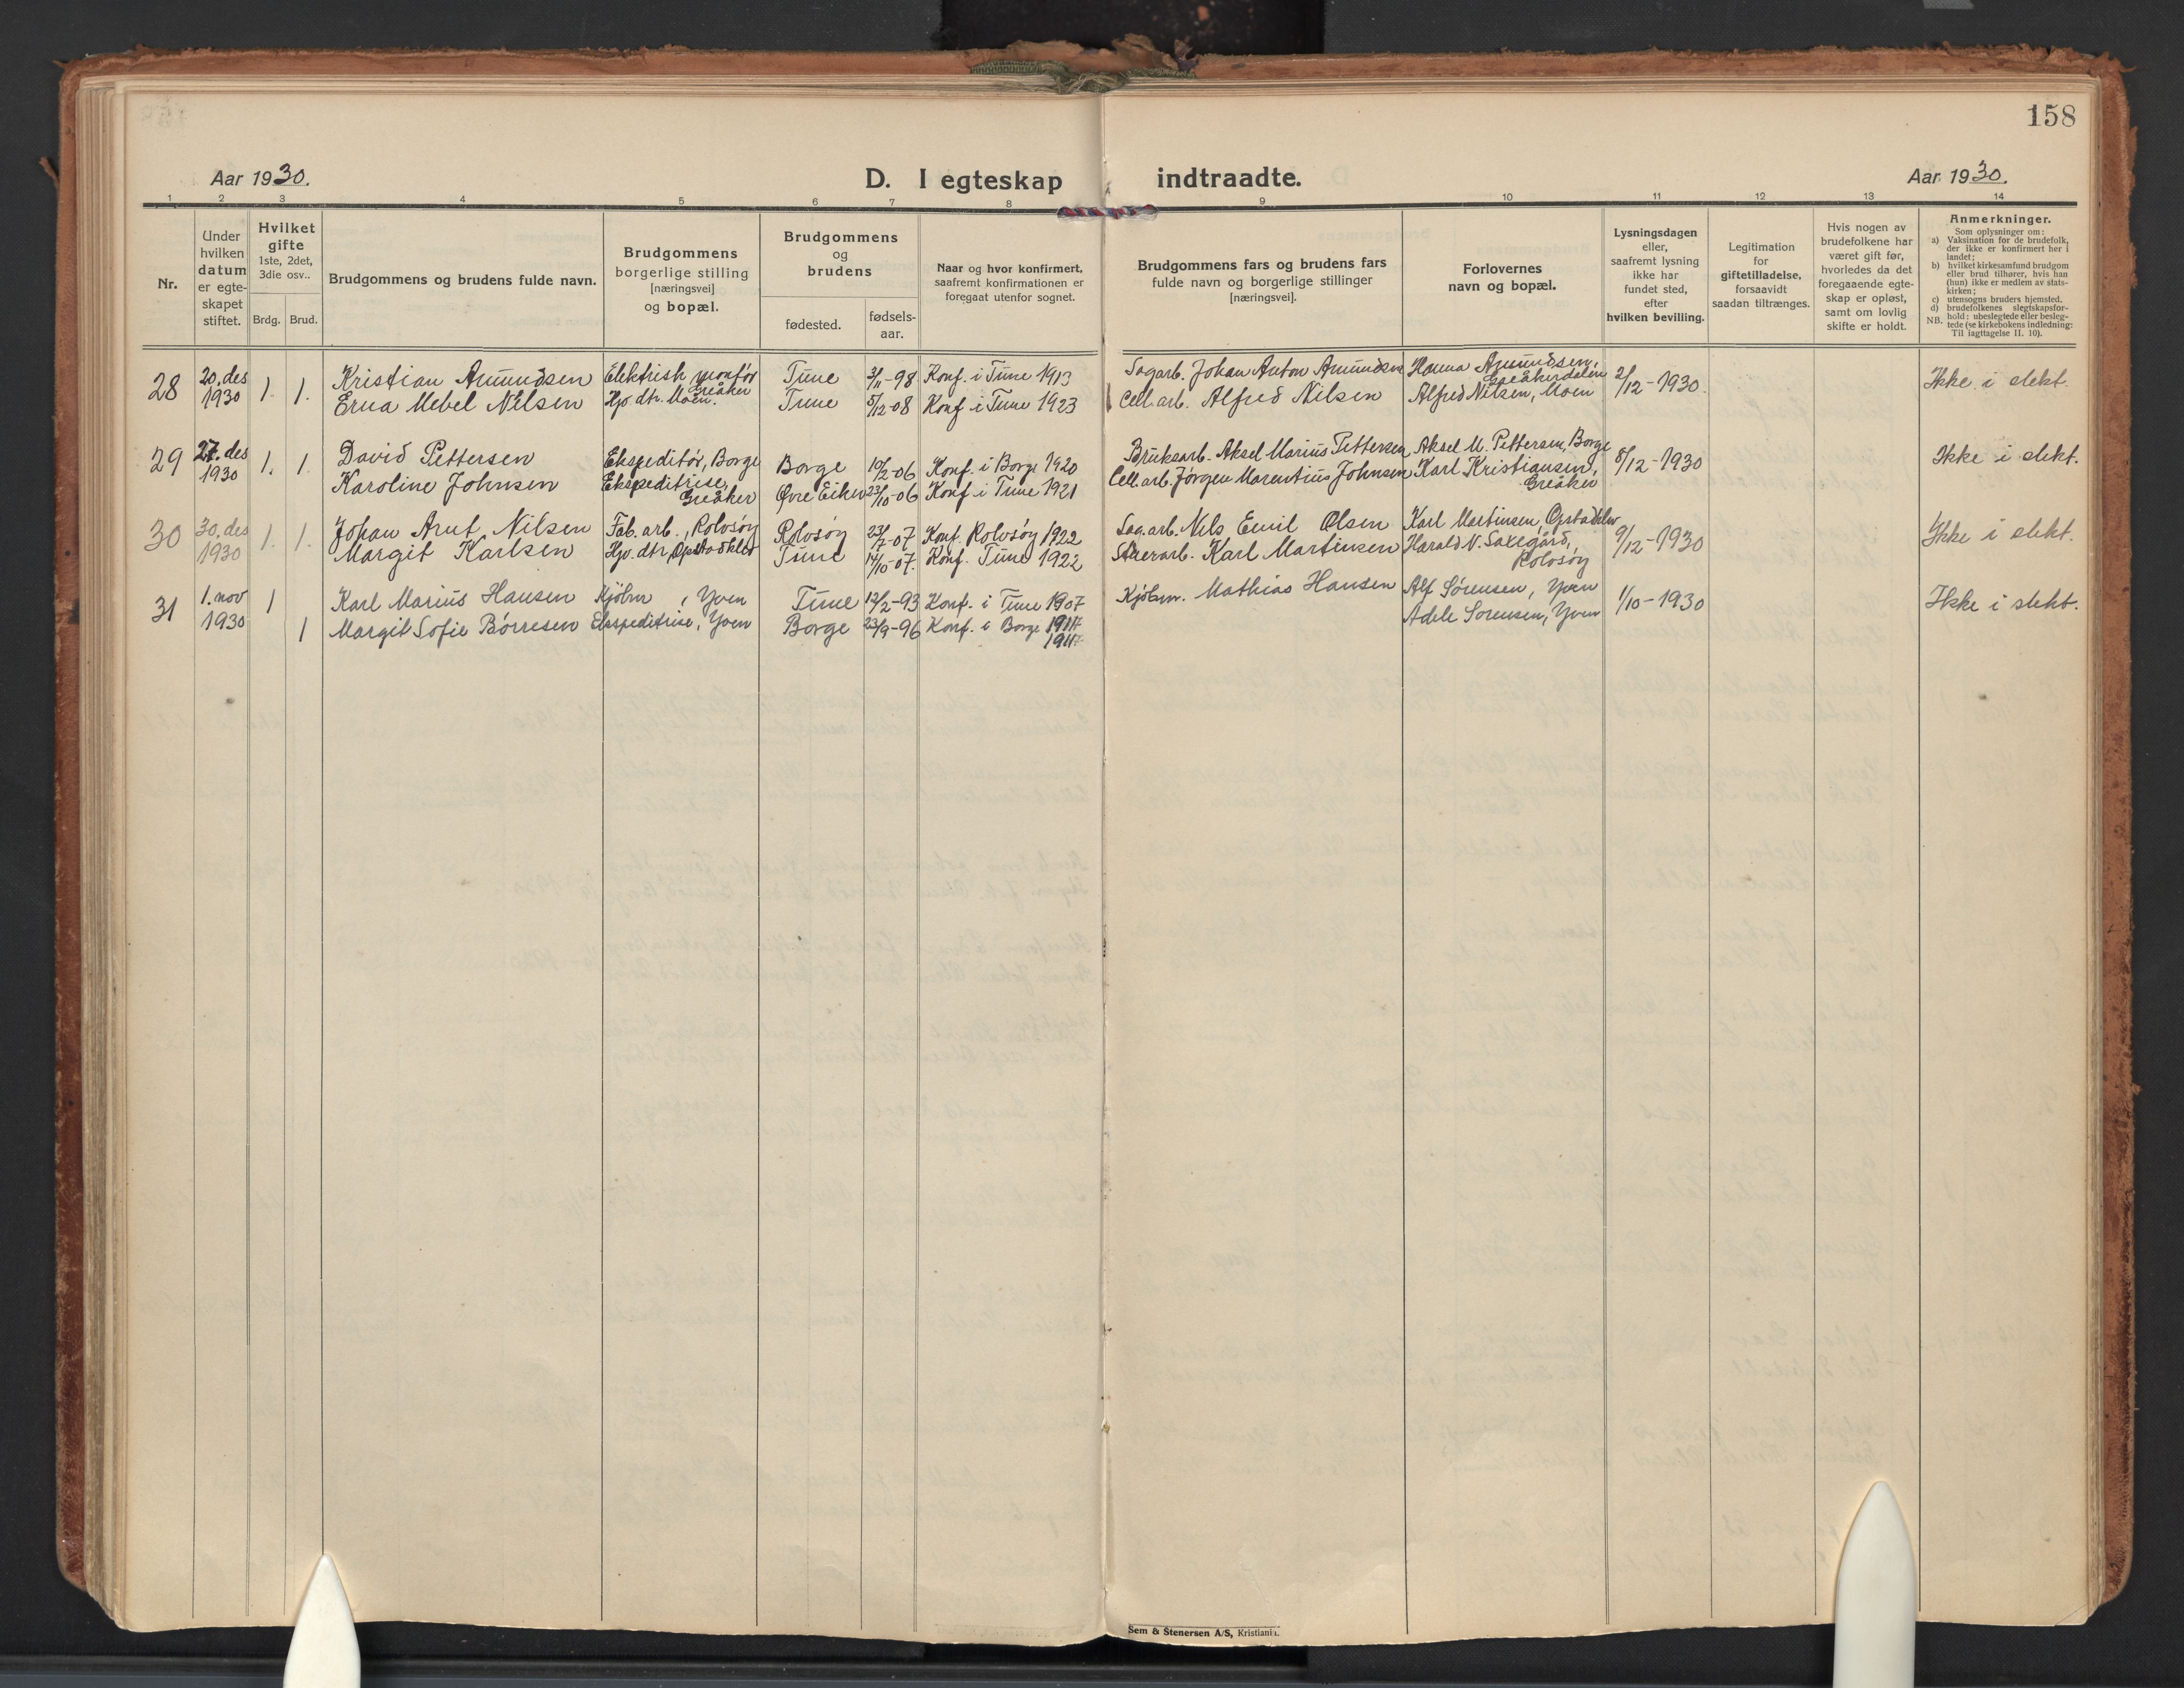 158
Aar 1930.
D. I egteskap indtraadte.
Aar 1930.
1 2 3 4 5 6 7 8 9 10 11 12 13 14
Nr.
Under hvilken datum er egte-skapet stiftet.
Hvilket gifte 1ste, 2det, 3die osv..
Brdg. Brud.
Brudgommens og brudens fulde navn.
Brudgommens borgerlige stilling [næringsvei] og bopæl.
Brudgommens og brudens
fødested.
fødsels-aar.
Naar og hvor konfirmert, saafremt konfirmationen er foregaat utenfor sognet.
Brudgommens fars og brudens fars fulde navn og borgerlige stillinger [næringsvei].
Forlovernes navn og bopæl.
Lysningsdagen eller, saafremt lysning ikke har fundet sted, efter hvilken bevilling.
Legitimation for giftetilladelse, forsaavidt saadan tiltrænges.
Hvis nogen av brudefolkene har været gift før, hvorledes da det foregaaende egte-skap er opløst, samt om lovlig skifte er holdt.
Anmerkninger.
Som oplysninger om:
a) Vaksination for de brudefolk, der ikke er konfirmert her i landet;
b) hvilket kirkesamfund brudgom eller brud tilhører, hvis han (hun) ikke er medlem av stats-kirken;
c) utensogns bruders hjemsted.
d) brudefolkenes slegtskapsfor-hold: ubeslegtede eller besleg-tede (se kirkebokens indledning:
NB. Til iagttagelse II. 10).
28 20. des 1930 1. 1. Kristian Amundsen Elektrisk montør Greåker Tune 3/11-98 Konf. i Tune 1913 Sagarb. Johan Anton Amundsen Hanna Amundsen, Greåkerdalen 2/12-1930. Ikke i slekt.
Erna Mebel Nilsen Hjv dtr. Moen. Tune 5/12-08 Konf i Tune 1923 Cell. arb. Alfred Nilsen Alfred Nilsen, Moen
29 27. des 1930 1. 1. David Pettersen Ekspeditør, Borge Borge 10/2-06 Konf. i Borge 1920 Bruksarb. Aksel Marius Pettersen Aksel M. Pettersen, Borge 8/12-1930 Ikke i slekt.
Karoline Johnsen Ekspeditrise, Greåker Øvre Eiker 23/10-06 Konf i Tune 1921 Cell. arb. Jørgen Marentius Johnsen Karl Kristiansen, Greåker
30 30. des 1930 1. 1. Johan Arnt Nilsen Fab. arb., Rolvsøy Rolvsøy 23/7-07 Konf. Rolvsøy 1922 Sag. arb. Nils Emil Olsen Karl Martinsen, 9/12-1930 Ikke i slekt.
Margit Karlsen Hjv. dtr, Tune 14/10-07. Konf. Tune 1922 Karl Martinsen Harald N. Saxegård, Rolvsøy
31 1. nov 1930 1 Karl Marius Hansen Kjøbm, Yven Tune 12/2-93 Konf. i Tune 1907 Kjøbm. Mathias Hansen Alf Sørensen, Yven 1/10-1930 Ikke i slekt.
1 Margit Sofie Børresen Ekspeditrise, Yven Borge 23/9-96 Konf. i Borge Adele Sørensen, Yven
Sem & Stenersen A/S, Kristiania.